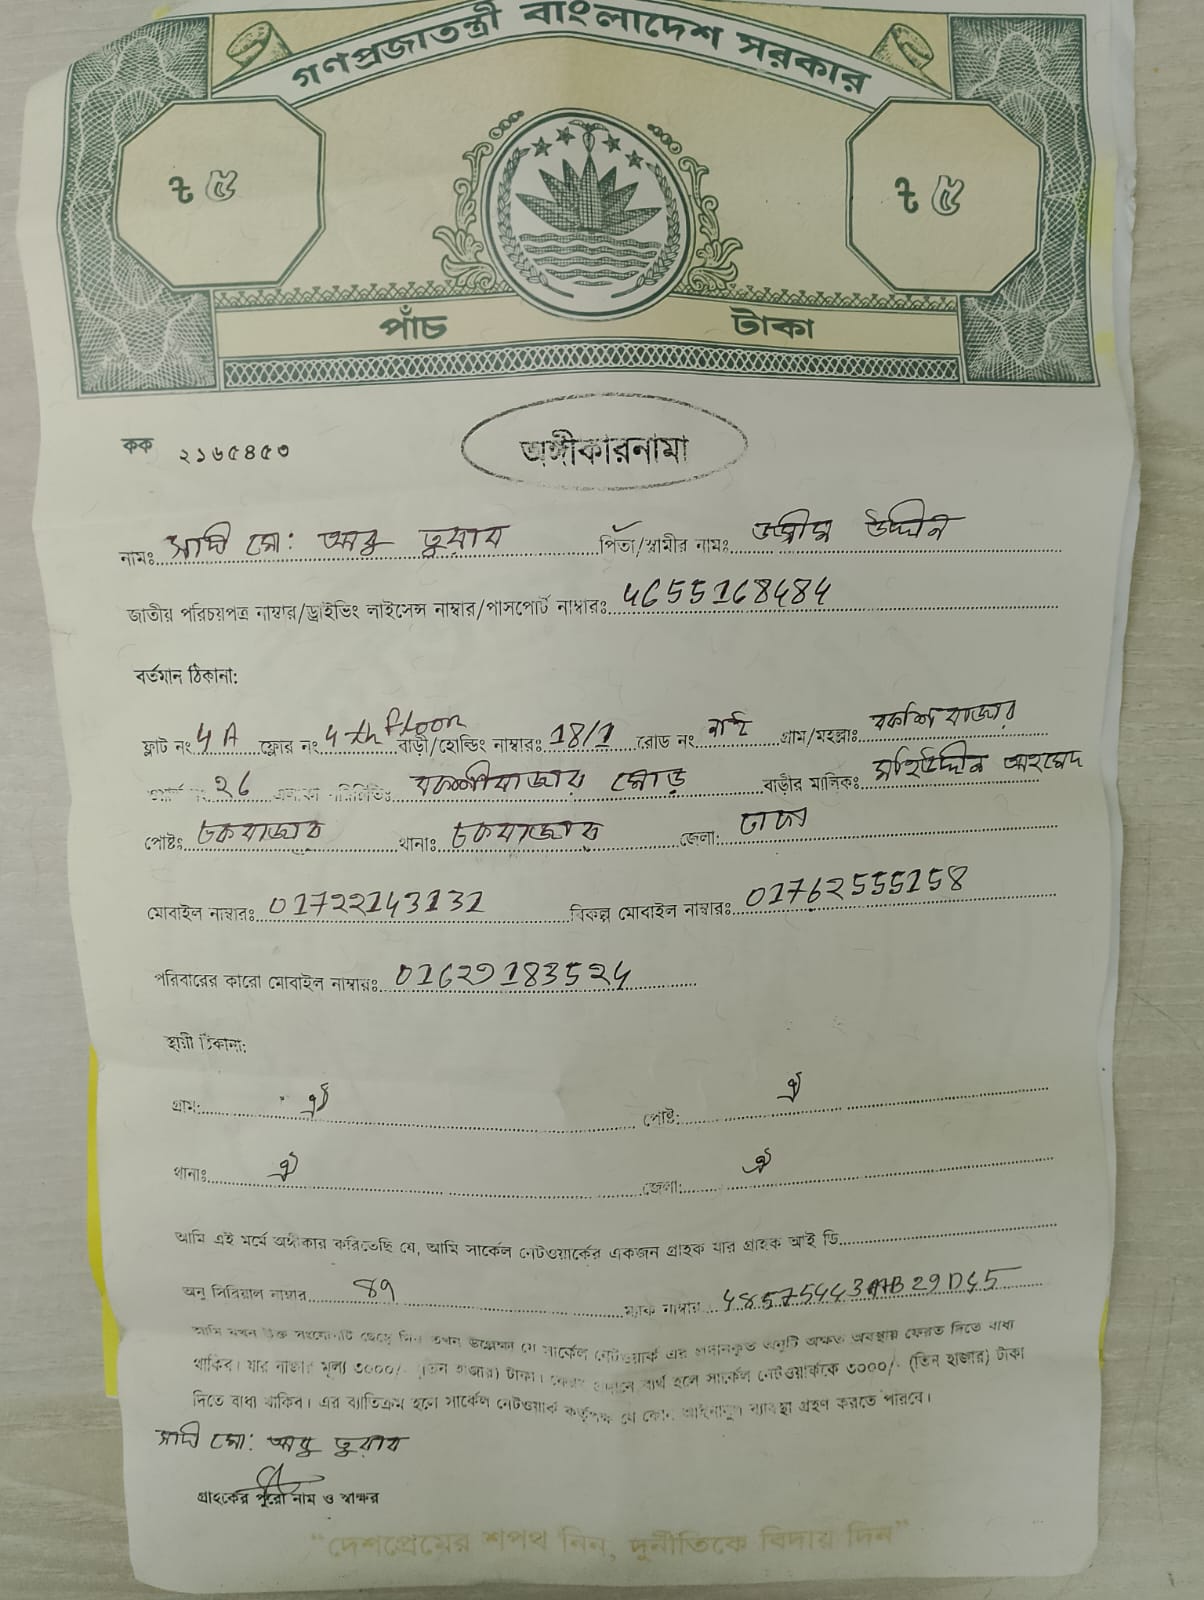 গণপ্রজাতন্ত্রী বাংলাদেশ সরকার
৳ ৫ ৳ ৫
পাঁচ টাকা
কক ২১৬৫৪৫৩
অঙ্গীকারনামা
নামঃ সাদি মো: আবু তুরাব পিতা/স্বামীর নামঃ উদ্দীন
জাতীয় পরিচয়পত্র নাম্বার/ড্রাইভিং লাইসেন্স নাম্বার/পাসপোর্ট নাম্বারঃ 4655168484
বর্তমান ঠিকানা:
ফ্লাট নং 4 A ফ্লোর নং 4 th floor বাড়ী/হোল্ডিং নাম্বারঃ 18/1 রোড নং নাই গ্রাম/মহল্লাঃ বকশি বাজার
নং 26 এলাকা পরিচিতিঃ বকশীবাজার মোড় বাড়ীর মালিকঃ মহিউদ্দিন আহমেদ
পোষ্টঃ চকবাজার থানাঃ চকবাজার জেলা: ঢাকা
মোবাইল নাম্বারঃ 01722143132 বিকল্প মোবাইল নাম্বারঃ 01762555158
পরিবারের কারো মোবাইল নাম্বারঃ 01629183524
স্থায়ী ঠিকানা:
গ্রাম: ঐ পোষ্ট: ঐ
থানাঃ ঐ জেলা: ঐ
আমি এই মর্মে অঙ্গীকার করিতেছি যে, আমি সার্কেল নেটওয়ার্কের একজন গ্রাহক যার গ্রাহক আই ডি
অনু সিরিয়াল নাম্বার 89 ম্যাক নাম্বার
আমি যখন উক্ত সংযোগটি ছেড়ে দিব তখন উল্লেখ্য যে সার্কেল নেটওয়ার্ক এর প্রদানকৃত অনুটি অক্ষত অবস্থায় ফেরত দিতে বাধ্য
থাকিব। যার বাজার মূল্য ৩০০০/- (তিন হাজার) টাকা। ফেরত প্রদানে ব্যর্থ হলে সার্কেল নেটওয়ার্ককে ৩০০০/- (তিন হাজার) টাকা
দিতে বাধ্য থাকিব। এর ব্যতিক্রম হলে সার্কেল নেটওয়ার্ক কর্তৃপক্ষ যে কোন আইনানুগ ব্যবস্থা গ্রহণ করতে পারবে।
সাদি মো: আবু তুরাব
গ্রাহকের পুরো নাম ও স্বাক্ষর
"দেশপ্রেমের শপথ নিন, দুর্নীতিকে বিদায় দিন"